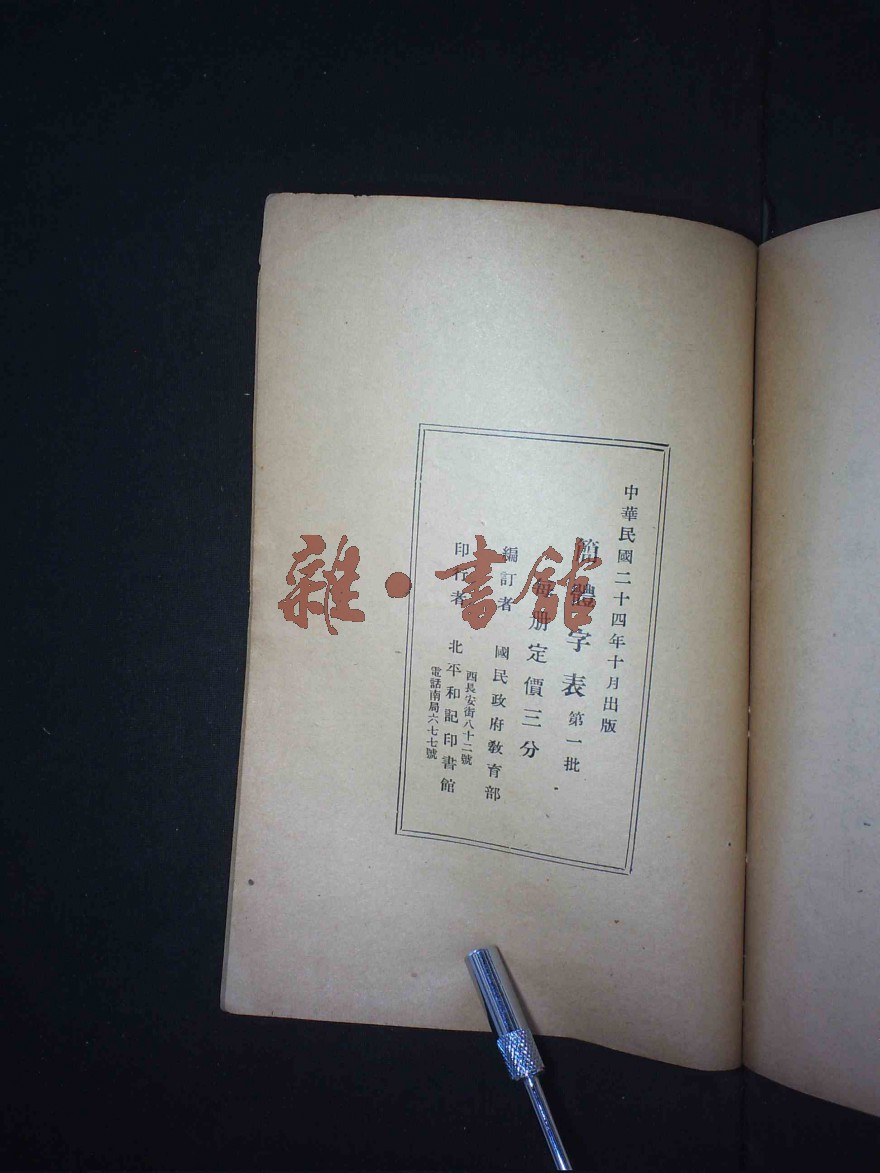 中華民國二十四年十月出版
簡體字表 第一批
每册定價三分
編訂者 國民政府教育部
印行者 北平和記印書館
西長安街八十二號
電話南局六七七號
雜·書館